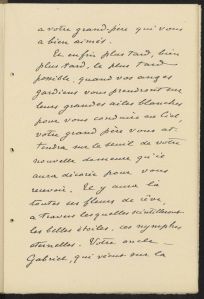 a votre grand-père qui vous
a bien aimés.
Et enfin plus tard, bien
plus tard, le plus tard
possible, quand vos anges
gardiens vous prendront sur
leurs grandes ailes blanches
pour vous conduire au Ciel,
votre grand père vous at-
tendra sur le seuil de votre
nouvelle demeure qu'il
aura décorée pour vous
recevoir. Il y aura là
toutes ses fleurs de rêve,
a travers lesquelles scintilleront
les belles étoiles, ces nymphes
éternelles. Votre oncle
Gabriel, qui vécut sur la